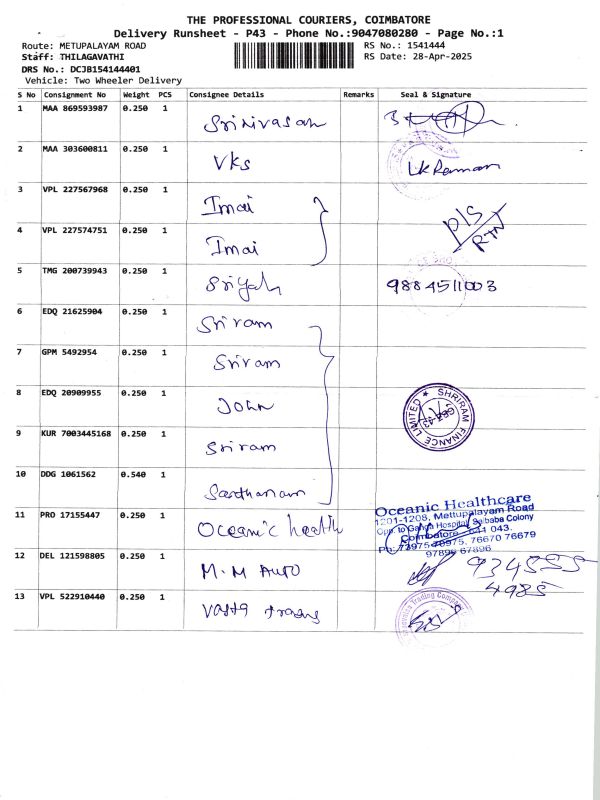 THE PROFESSIONAL COURIERS, COIMBATORE
Delivery Runsheet - P43 - Phone No.:9047080280 - Page No.:1
Route: METUPALAYAM ROAD RS No.: 1541444
Staff: THILAGAVATHI RS Date: 28-Apr-2025
DRS No.: DCJB154144401
Vehicle: Two Wheeler Delivery
S No Consignment No Weight PCS Consignee Details Remarks Seal & Signature
1 MAA 869593987 0.250 1 Srinivasan
2 MAA 303600811 0.250 1 Vks
3 VPL 227567968 0.250 1 Imai
4 VPL 227574751 0.250 1 Imai P/S RTN
5 TMG 200739943 0.250 1 9884511003
6 EDQ 21625904 0.250 1 Sriram
7 GPM 5492954 0.250 1 Sriram
8 EDQ 20909955 0.250 1 John SHRIRAM FINANCE LIMITED
9 KUR 7003445168 0.250 1 Sriram
10 DDG 1061562 0.540 1 Santhanam
11 PRO 17155447 0.250 1 Oceanic health
Oceanic Healthcare
1201-1208, Mettupalayam Road
Opp. to Ganga Hospital, Saibaba Colony
Coimbatore - 641 043.
Ph: 73975 76975, 76670 76679
97896 67896
12 DEL 121598805 0.250 1 M.M Auto 934555
4985
13 VPL 522910440 0.250 1 Trading Company